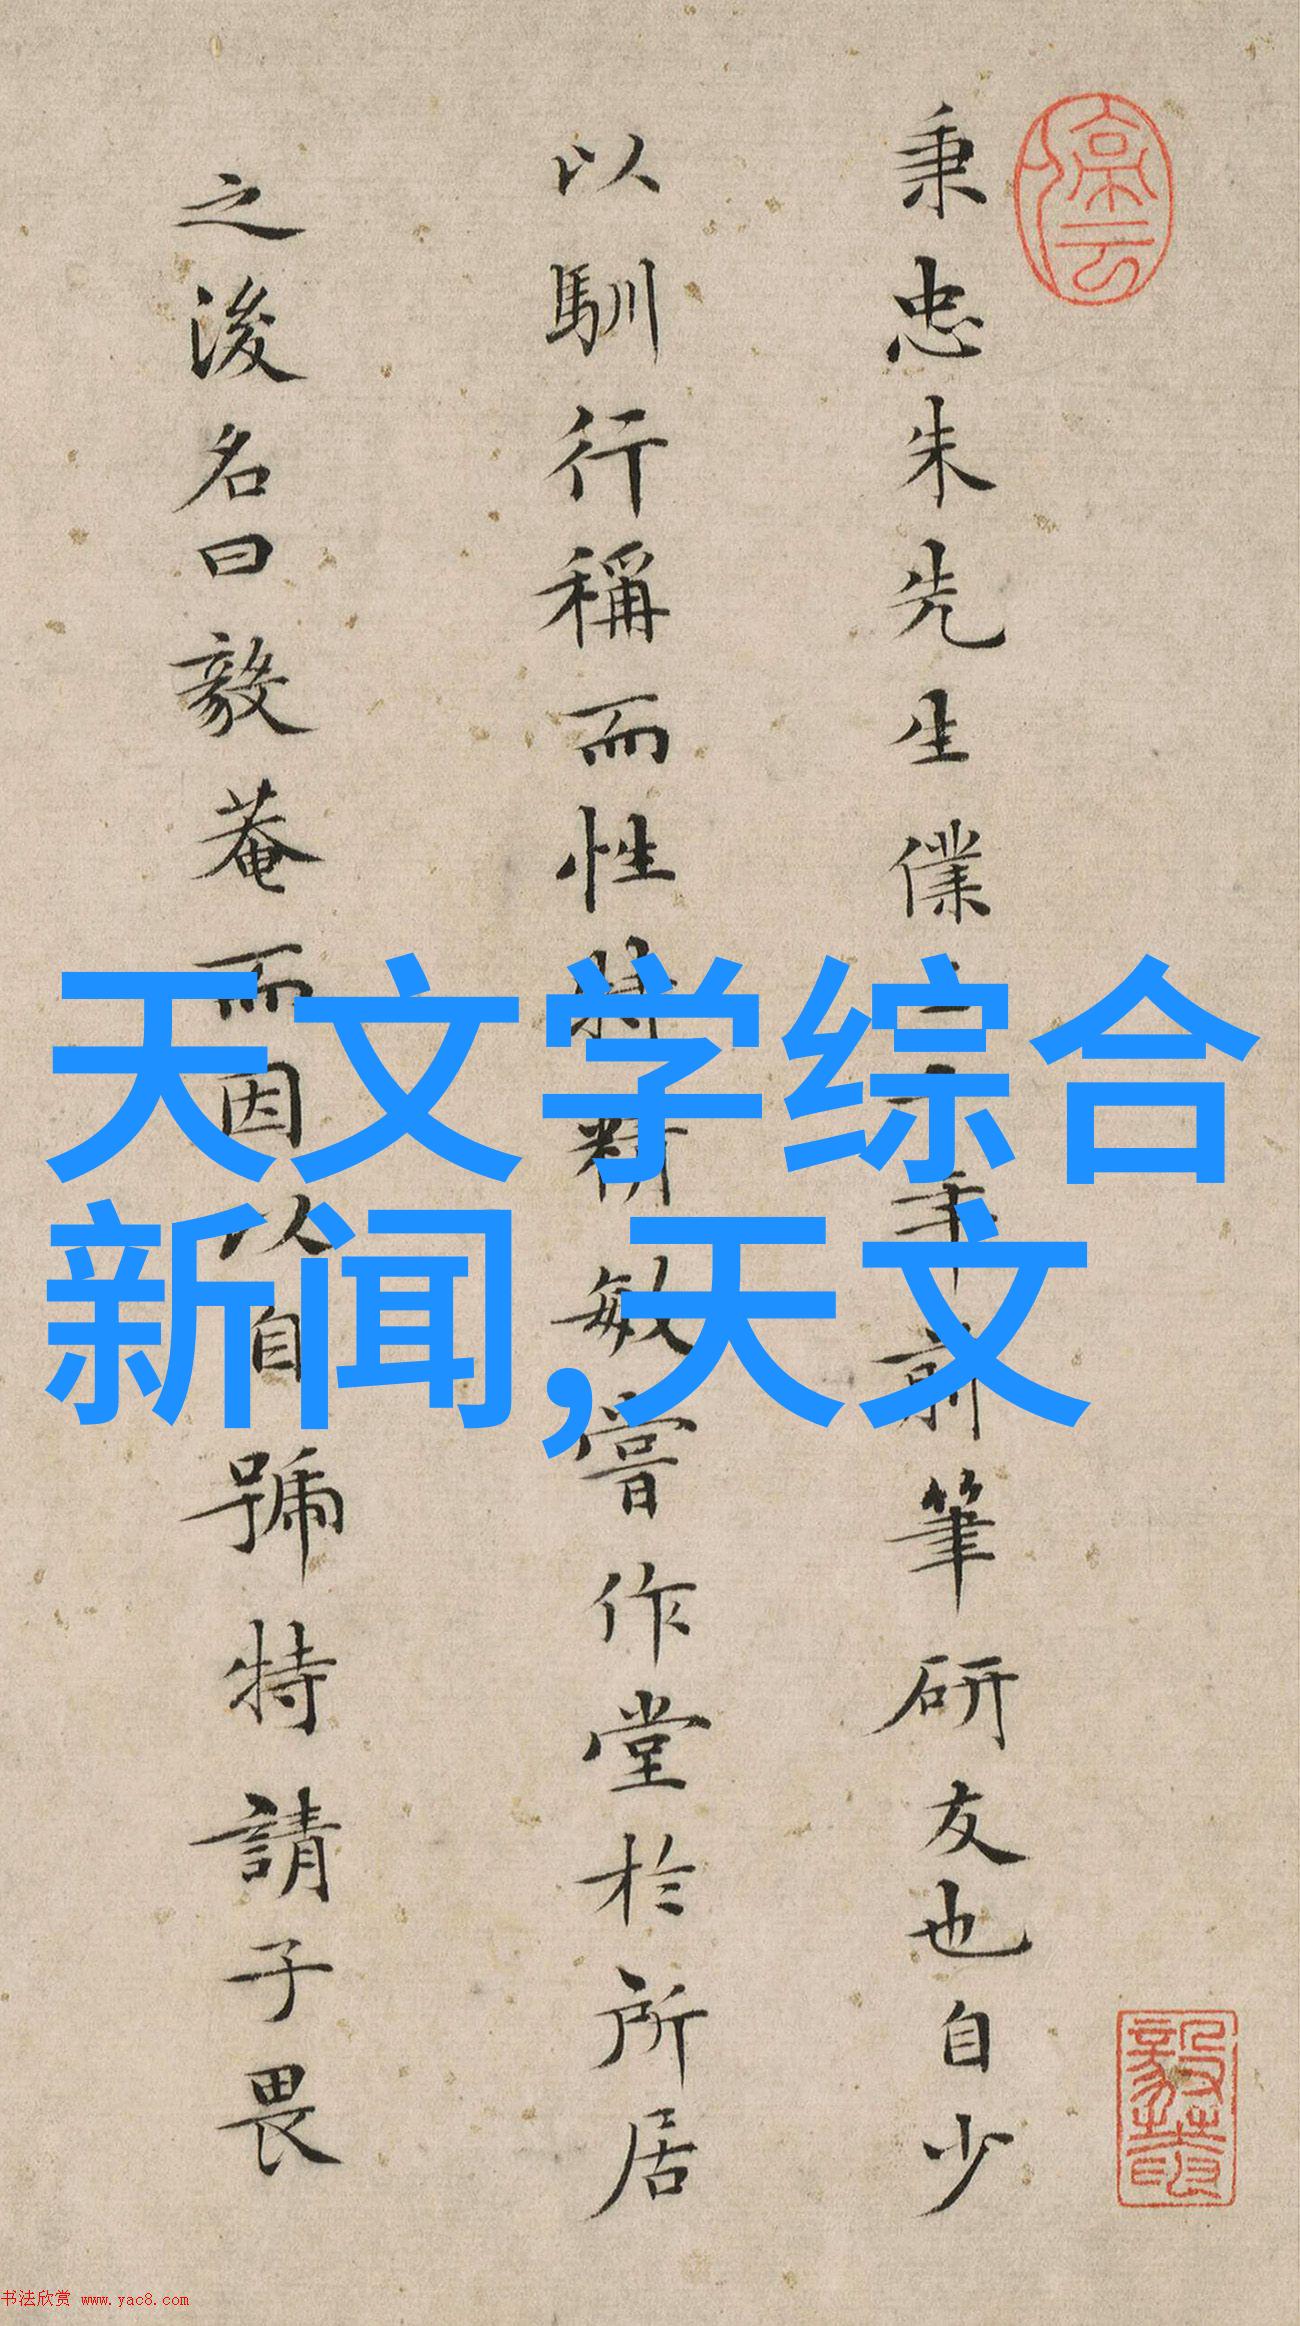 秉忠朱先生僕年前筆研友也自少
以馴行稱而性特精敏嘗作堂於所居
之後名曰毅菴而因以自號特請子畏
天文学综合
新闻,天文
书法欣赏 www.yac8.com